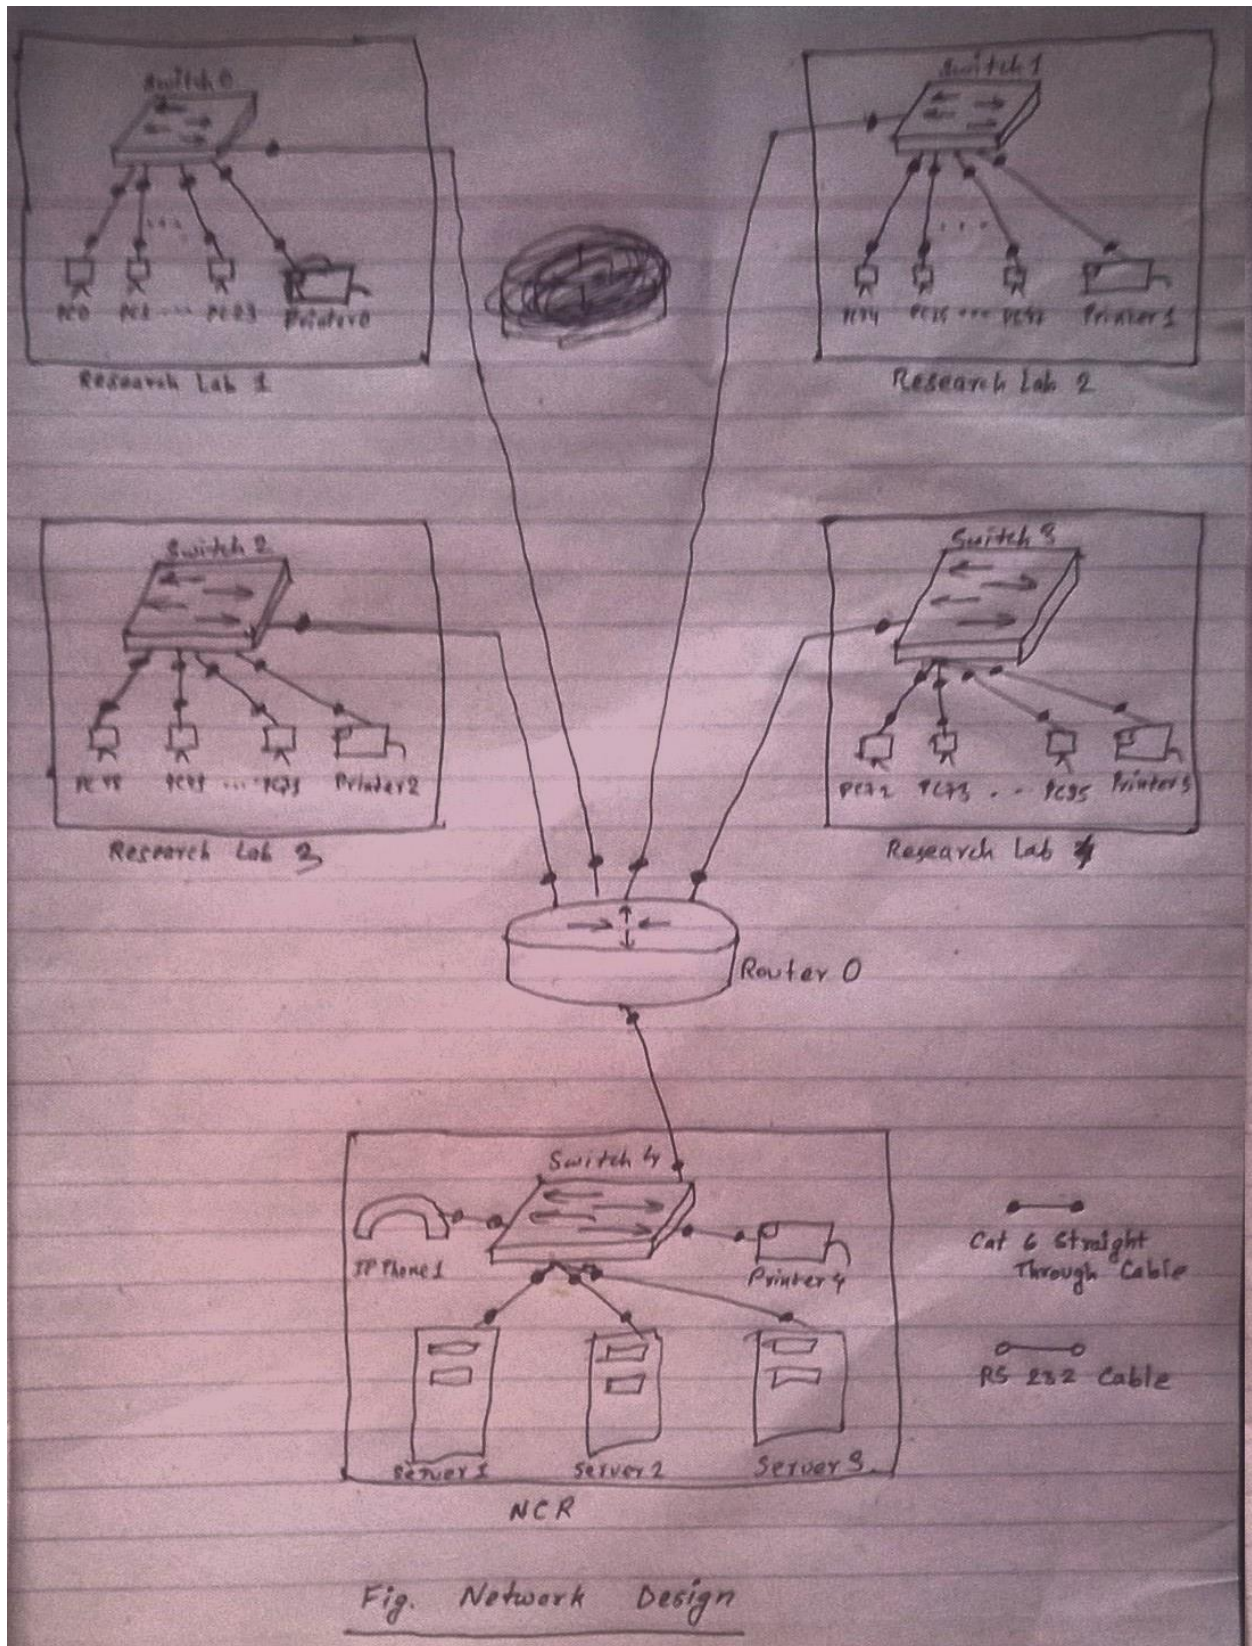 Switch 0
PC0 PC1 ... PC23 Printer0
Research Lab 1
Switch 1
PC24 PC25 ... PC47 Printer 1
Research Lab 2
Switch 2
PC48 PC49 ... Printer2
Research Lab 3
Switch 3
PC72 PC73 .. PC95 Printer3
Research Lab 4
Router 0
Switch 4
IP Phone1
Printer4
Server1 Server2 Server3
NCR
Cat 6 Straight
Through Cable
RS 232 Cable
Fig. Network Design